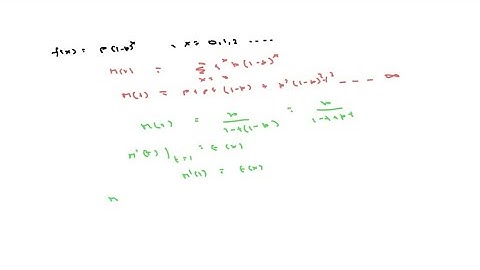 f(x) = p(1-p)^x , x = 0,1,2 ....
n(t) = Σ_{x=0} t^x p(1-p)^x
n(t) = p + pt(1-p) + p t^2 (1-p)^2 + ... ∞
n(t) = p / 1-t(1-p) = p / 1-t+pt
n'(t) |_{t=1} = E(x)
n'(1) = E(x)
n